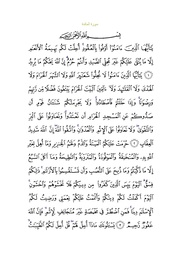 سورة المائدة
بِسْمِ ٱللَّهِ ٱلرَّحْمَٰنِ ٱلرَّحِيمِ
يَٰٓأَيُّهَا ٱلَّذِينَ ءَامَنُوٓا۟ أَوْفُوا۟ بِٱلْعُقُودِ أُحِلَّتْ لَكُم بَهِيمَةُ ٱلْأَنْعَٰمِ
إِلَّا مَا يُتْلَىٰ عَلَيْكُمْ غَيْرَ مُحِلِّى ٱلصَّيْدِ وَأَنتُمْ حُرُمٌ إِنَّ ٱللَّهَ يَحْكُمُ مَا يُرِيدُ
١ يَٰٓأَيُّهَا ٱلَّذِينَ ءَامَنُوا۟ لَا تُحِلُّوا۟ شَعَٰٓئِرَ ٱللَّهِ وَلَا ٱلشَّهْرَ ٱلْحَرَامَ وَلَا
ٱلْهَدْىَ وَلَا ٱلْقَلَٰٓئِدَ وَلَآ ءَآمِّينَ ٱلْبَيْتَ ٱلْحَرَامَ يَبْتَغُونَ فَضْلًا مِّن رَّبِّهِمْ
وَرِضْوَٰنًا وَإِذَا حَلَلْتُمْ فَٱصْطَادُوا۟ وَلَا يَجْرِمَنَّكُمْ شَنَـَٔانُ قَوْمٍ أَن
صَدُّوكُمْ عَنِ ٱلْمَسْجِدِ ٱلْحَرَامِ أَن تَعْتَدُوا۟ وَتَعَاوَنُوا۟ عَلَى ٱلْبِرِّ
وَٱلتَّقْوَىٰ وَلَا تَعَاوَنُوا۟ عَلَى ٱلْإِثْمِ وَٱلْعُدْوَٰنِ وَٱتَّقُوا۟ ٱللَّهَ إِنَّ ٱللَّهَ شَدِيدُ
ٱلْعِقَابِ ٢ حُرِّمَتْ عَلَيْكُمُ ٱلْمَيْتَةُ وَٱلدَّمُ وَلَحْمُ ٱلْخِنزِيرِ وَمَآ أُهِلَّ لِغَيْرِ
ٱللَّهِ بِهِۦ وَٱلْمُنْخَنِقَةُ وَٱلْمَوْقُوذَةُ وَٱلْمُتَرَدِّيَةُ وَٱلنَّطِيحَةُ وَمَآ أَكَلَ ٱلسَّبُعُ
إِلَّا مَا ذَكَّيْتُمْ وَمَا ذُبِحَ عَلَى ٱلنُّصُبِ وَأَن تَسْتَقْسِمُوا۟ بِٱلْأَزْلَٰمِ ذَٰلِكُمْ
فِسْقٌ ٱلْيَوْمَ يَئِسَ ٱلَّذِينَ كَفَرُوا۟ مِن دِينِكُمْ فَلَا تَخْشَوْهُمْ وَٱخْشَوْنِ
ٱلْيَوْمَ أَكْمَلْتُ لَكُمْ دِينَكُمْ وَأَتْمَمْتُ عَلَيْكُمْ نِعْمَتِى وَرَضِيتُ لَكُمُ
ٱلْإِسْلَٰمَ دِينًا فَمَنِ ٱضْطُرَّ فِى مَخْمَصَةٍ غَيْرَ مُتَجَانِفٍ لِّإِثْمٍ فَإِنَّ ٱللَّهَ
غَفُورٌ رَّحِيمٌ ٣ يَسْـَٔلُونَكَ مَاذَآ أُحِلَّ لَهُمْ قُلْ أُحِلَّ لَكُمُ ٱلطَّيِّبَٰتُ